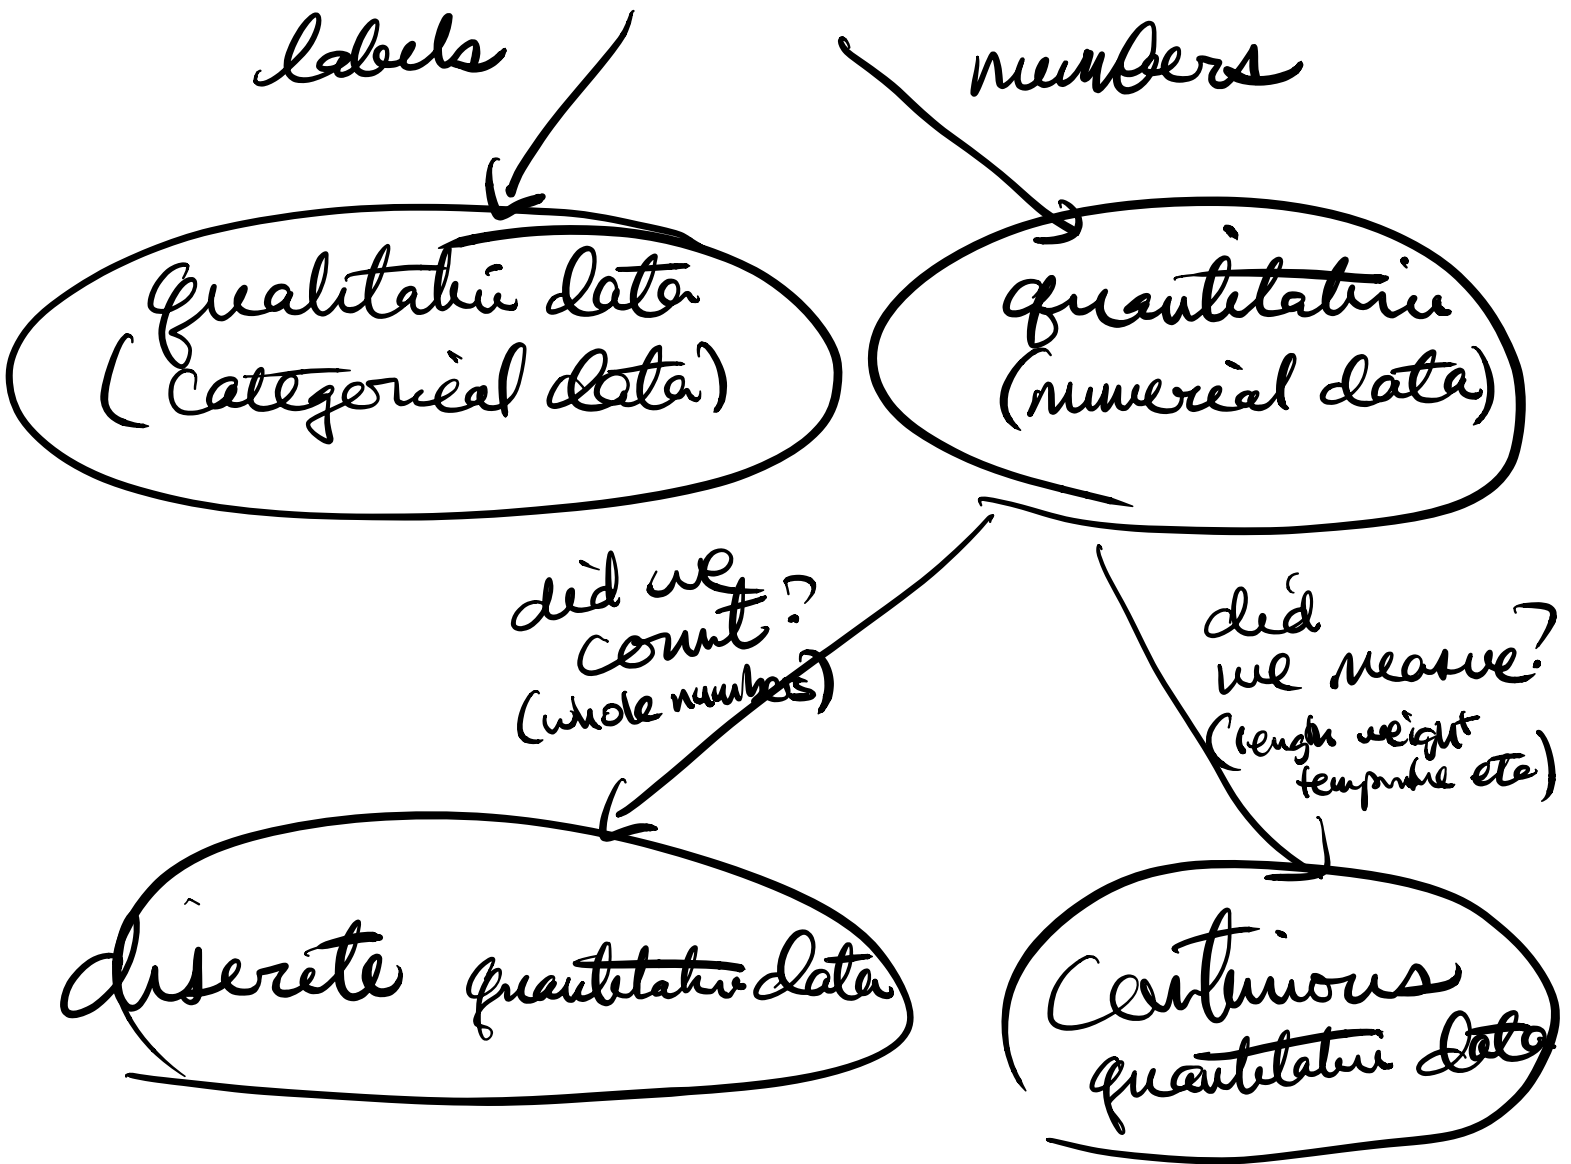 labels
numbers
qualitative data
(categorical data)
quantitative
(numerical data)
did we
count?
(whole numbers)
did
we measure?
(length weight
temperature etc)
discrete quantitative data
continuous
quantitative data